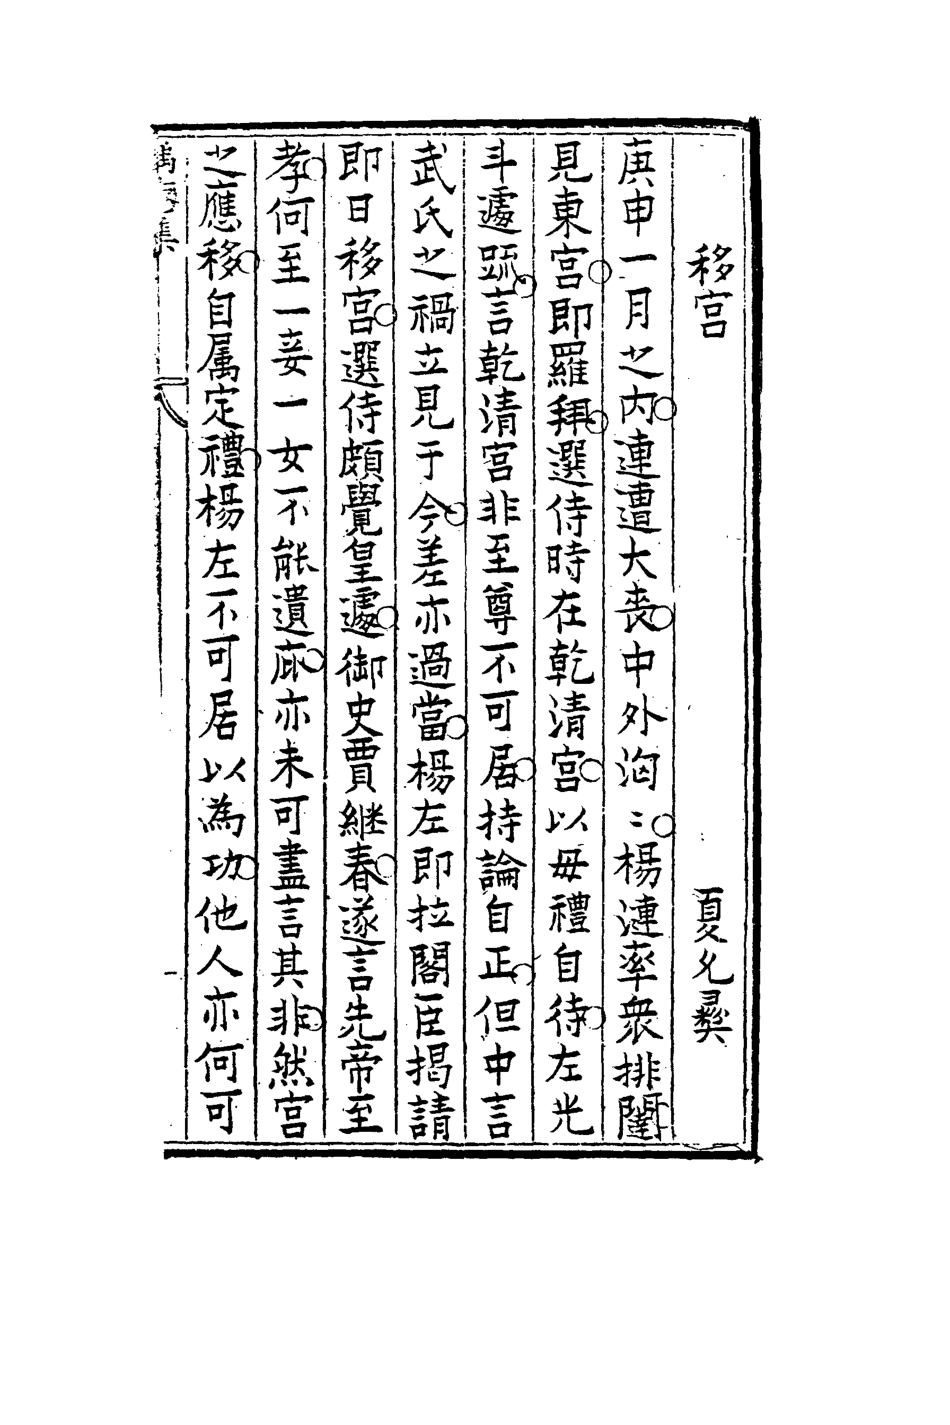 移宫　夏允彝
庚申一月之内連遭大喪中外洶〻楊漣率衆排闥
見東宫即羅拜選侍時在乾清宫以毋禮自待左光
斗遽䟽言乾清宫非至尊不可居持論自正但中言
武氏之禍立見于今差亦過當楊左即拉閣臣揭請
即日移宫選侍頗覺皇遽御史賈継春遂言先帝至
孝何至一妾一女不能遺庇亦未可盡言其非然宫
之應移自属定禮楊左不可居以為功他人亦何可
集